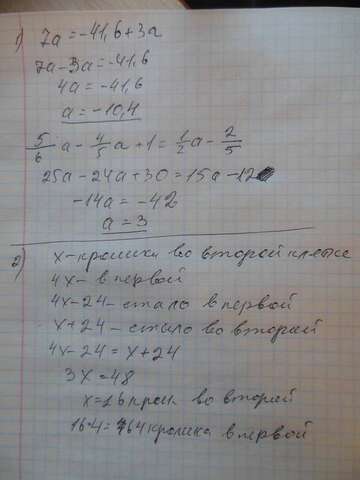 1) 7a = -41,6+3a
7a-3a=-41,6
4a = -41,6
a = -10,4
5/6 a - 4/5 a + 1 = 1/2 a - 2/5
25a - 24a + 30 = 15a - 12
-14a = -42
a = 3
2) x - кролики во второй клетке
4x - в первой
4x-24 - стало в первой
x+24 - стало во второй
4x-24 = x+24
3x = 48
x=16 крол во второй
16·4 = 64 кролика в первой